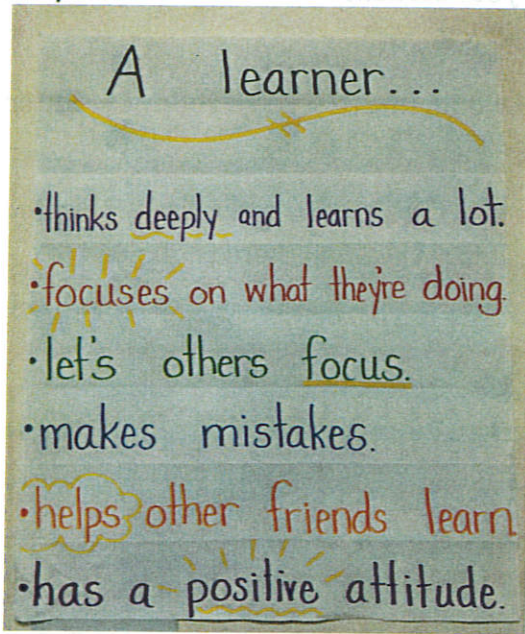 A learner...
•thinks deeply and learns a lot.
•focuses on what they're doing.
•let's others focus.
•makes mistakes.
•helps other friends learn
•has a positive attitude.